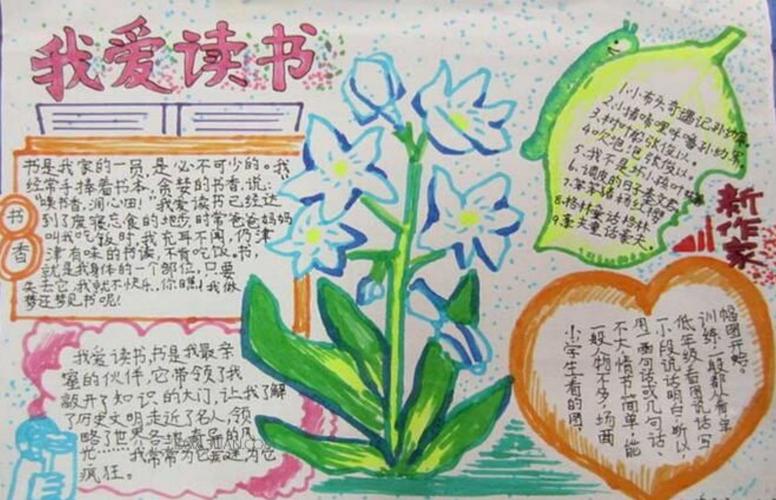 我爱读书
书是我家的一员,是必不可少的。我
经常手捧着书本,贪婪的书香,说:
"噗书香,润心田!"我爱读书已经达
到了废寝忘食的地步,时常爸爸妈妈
叫我吃饭时,我充耳不闻,仍津
津有味的书读,不肯吃饭。书,
就是我身体的一个部位,只要
失去它,我就不快乐,你瞧!我做
梦还梦见书呢!
书香
我爱读书,书是我最亲
密的伙伴,它带领了我
敲开了知识的大门,让我了解
了历史文明,走近了名人,领
略了世界各地
我常常为它
疯狂。
1.小布头奇遇记孙幼军。
2.小猪唏哩呼噜孙幼军
3.树叶
5.我不是坏小孩
6.调皮的日子秦文君
7.笨笨猪杨红樱
8.格林童话格林
9.豪夫童话豪夫。
新作家
幅图开始。
训练一般都从看单
低年级看图说话写
一小段说话明白,所以
用一两句话或几句话、
不大,情节简单,能
一般人物不多,场面
小学生看的图,